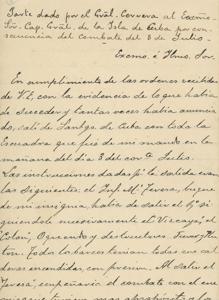 Parte dado por el Gral. Cervera al Excmo.
Sr. Cap. Gral. de la Isla de Cuba por con-
secuencia del combate del 3 de Julio.
Excmo. é Ilmo. Sor.
En cumplimiento de las ordenes recibidas
de V.E., con la evidencia de lo que había
de suceder y tantas veces había anuncia-
do, salí de Santgo de Cuba con toda la
Escuadra que fué de mi mando en la
mañana del día 3 del corrte Julio.
Las instrucciones dadas pa la salida eran
las siguientes: el Infta Ma Teresa, buque
de mi insignia, había de salir el 1º si-
guiendole sucesivamente el Vizcaya,
Colón, Oquendo y destructores Furor y Plu-
ton. Todos los barcos tenían todas sus cal-
deras encendidas, con presion. Al salir el
Teresa, empeñaría el combate con el ene-